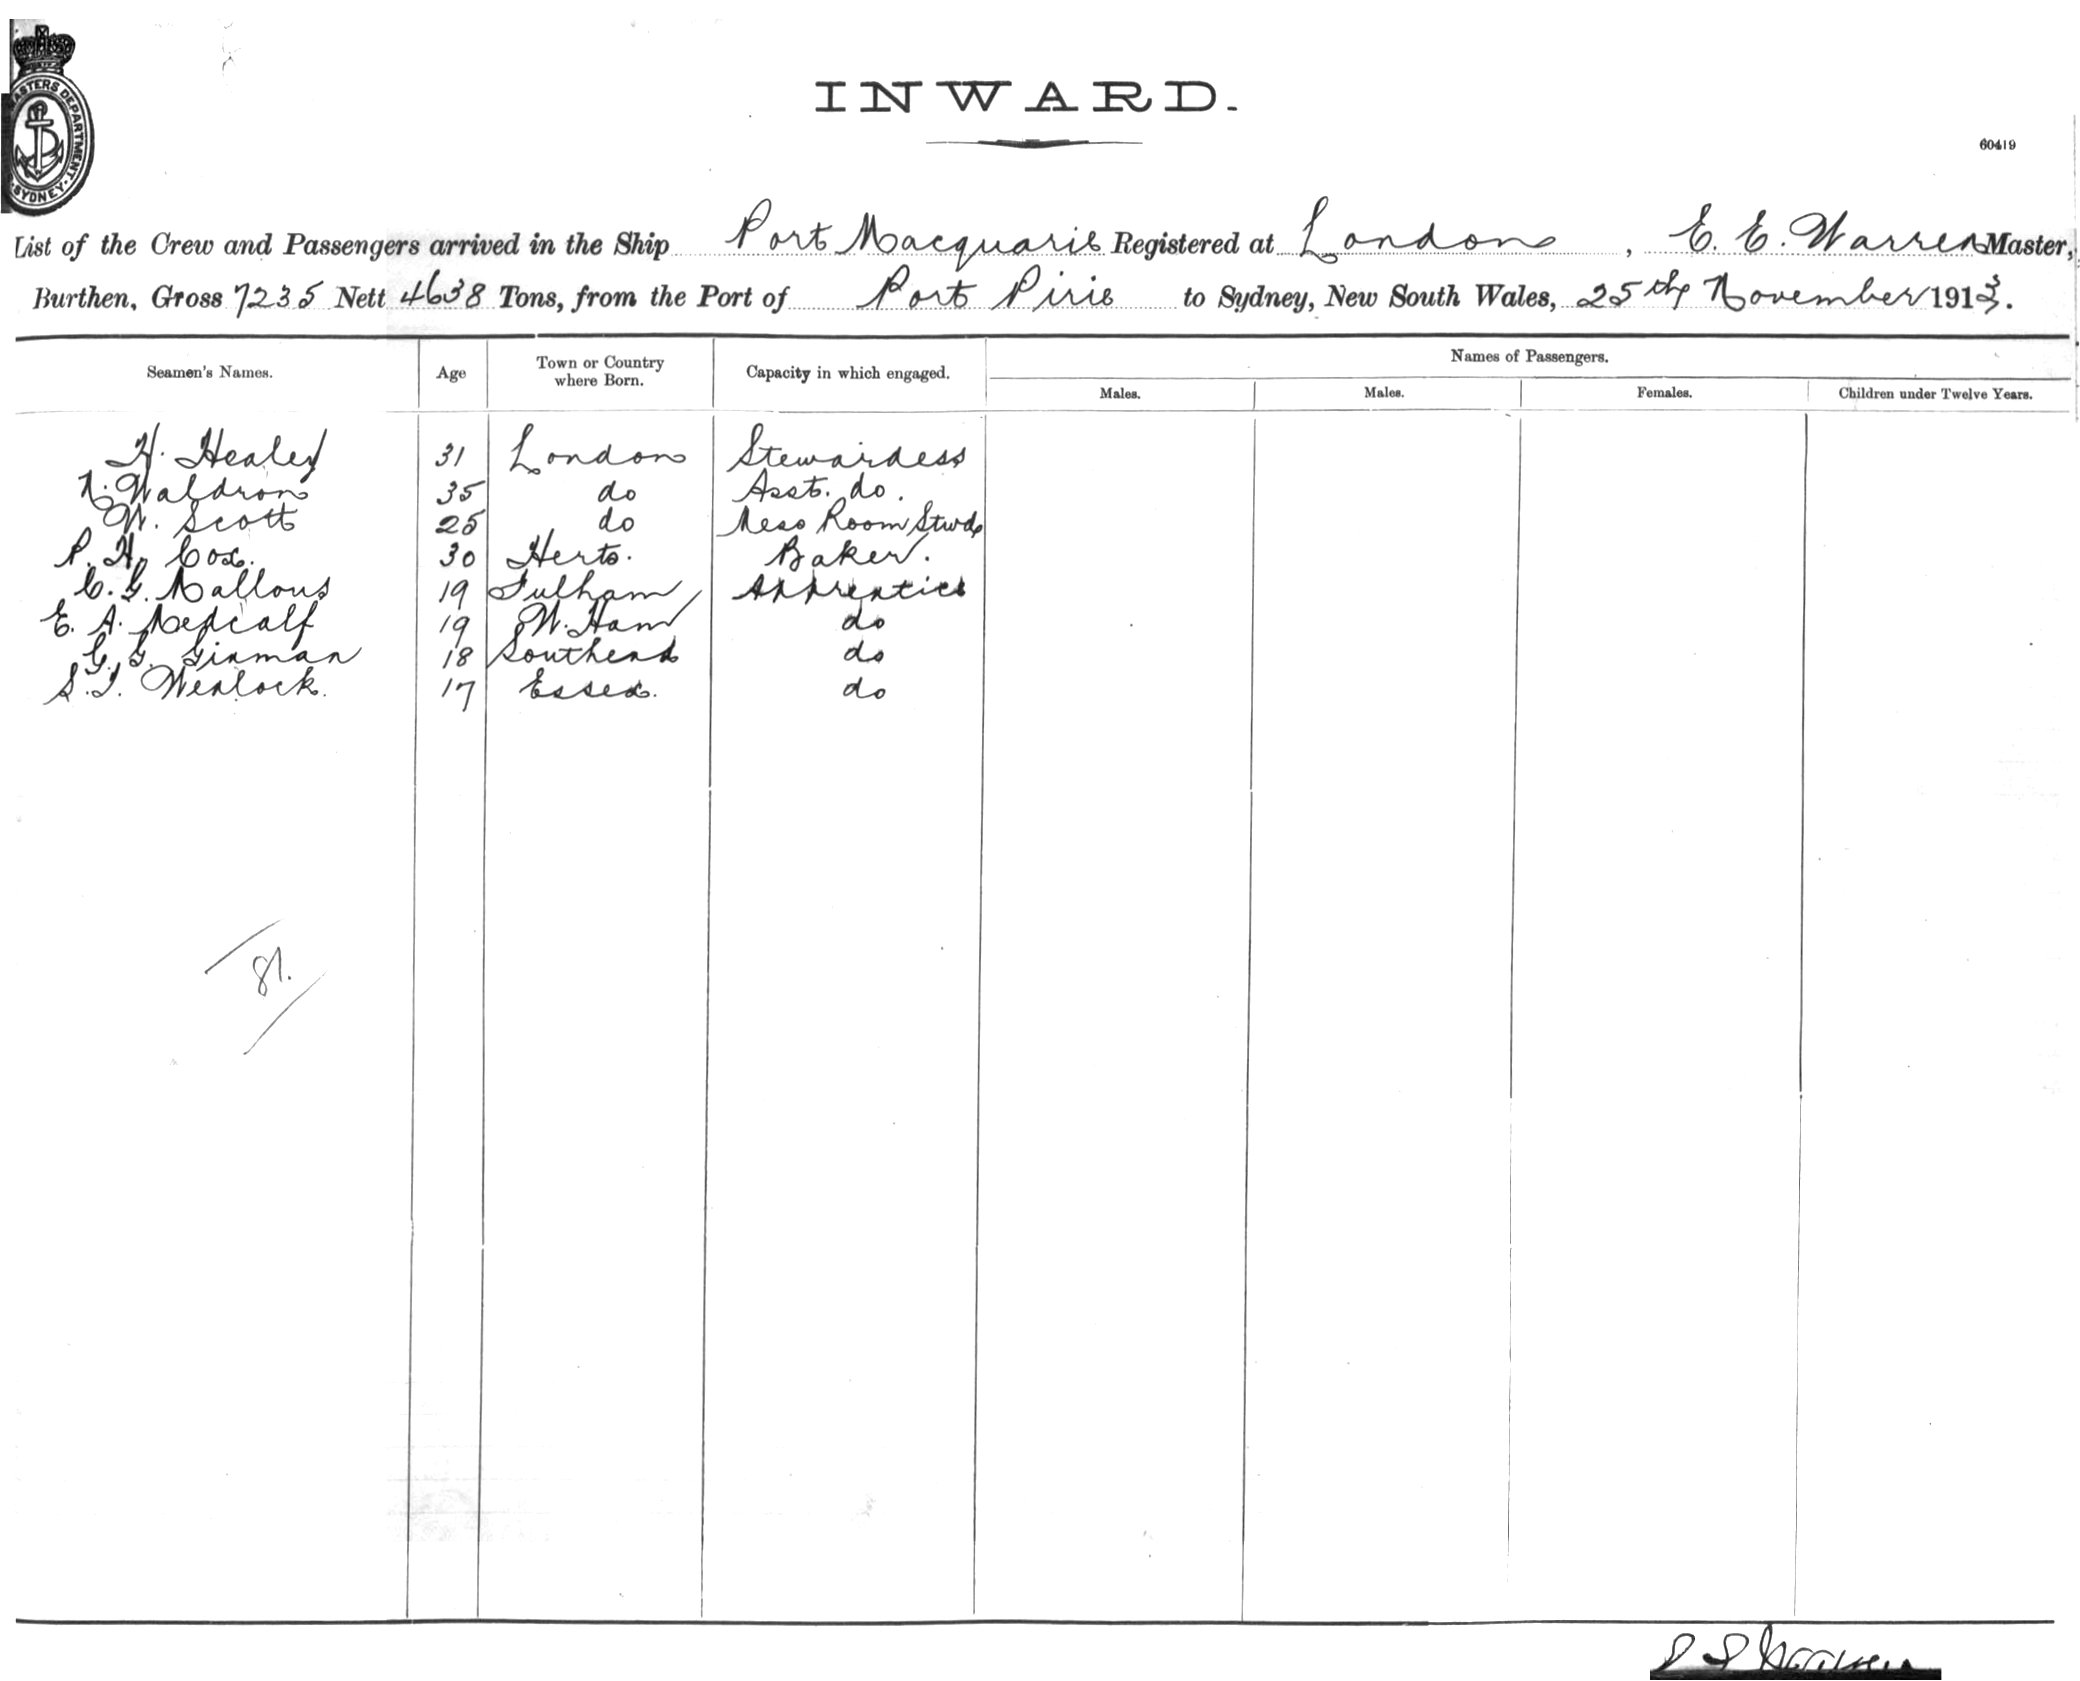 MASTERS DEPARTMENT
SYDNEY
INWARD.
60419
List of the Crew and Passengers arrived in the Ship Port Macquarie Registered at London, E. E. Warren Master,
Burthen, Gross 7235 Nett 4638 Tons, from the Port of Port Pirie to Sydney, New South Wales, 25th November 1913.
Names of Passengers.
Seamen's Names. Age Town or Country where Born. Capacity in which engaged. Males. Males. Females. Children under Twelve Years.
H. Healey 31 London Stewardess
N. Waldron 35 do Asst. do.
W. Scott 25 do Mess Room Stwd
P. H. Cox. 30 Herts. Baker.
C. G. 19 Fulham Apprentice
E. A. Medcalf 19 W. Ham do
G. G. Ginman 18 Southend do
S. J. Wenlock. 17 Essex. do
81.